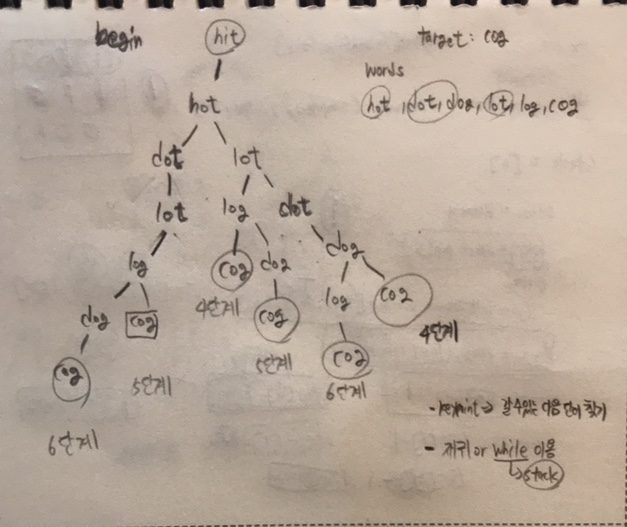 begin hit target: cog
words
hot
hot, dot, dog, lot, log, cog
dot lot
lot log dot
log cog dog dog
4단계
dog cog cog log cog
4단계
cog 5단계 5단계 cog
6단계
6단계
- keypoint → 갈 수 있는 다음 단어 찾기
- 재귀 or while 이용
↳ stack